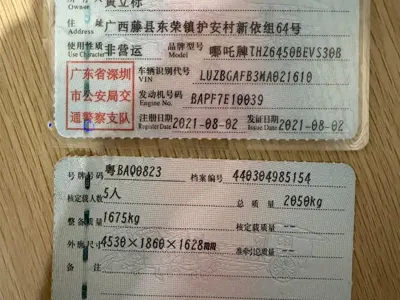 Owner 黄立标
住址 广西藤县东荣镇护安村新依组64号
Address
使用性质 非营运 品牌型号 哪吒牌THZ6450BEVS30B
Use Character Model
广东省深圳市公安局交通警察支队
车辆识别代号 LUZBGAFB3MA021610
VIN
发动机号码 BAPF7E10039
Engine No.
注册日期 2021-08-02 发证日期 2021-08-02
Register Date Issue Date
号牌号码 粤BA00823 档案编号 440304985154
核定载人数 5人 总质量 2050kg
整备质量 1675kg 核定载质量 --
外廓尺寸 4530×1860×1628 准牵引总质量 --
备注